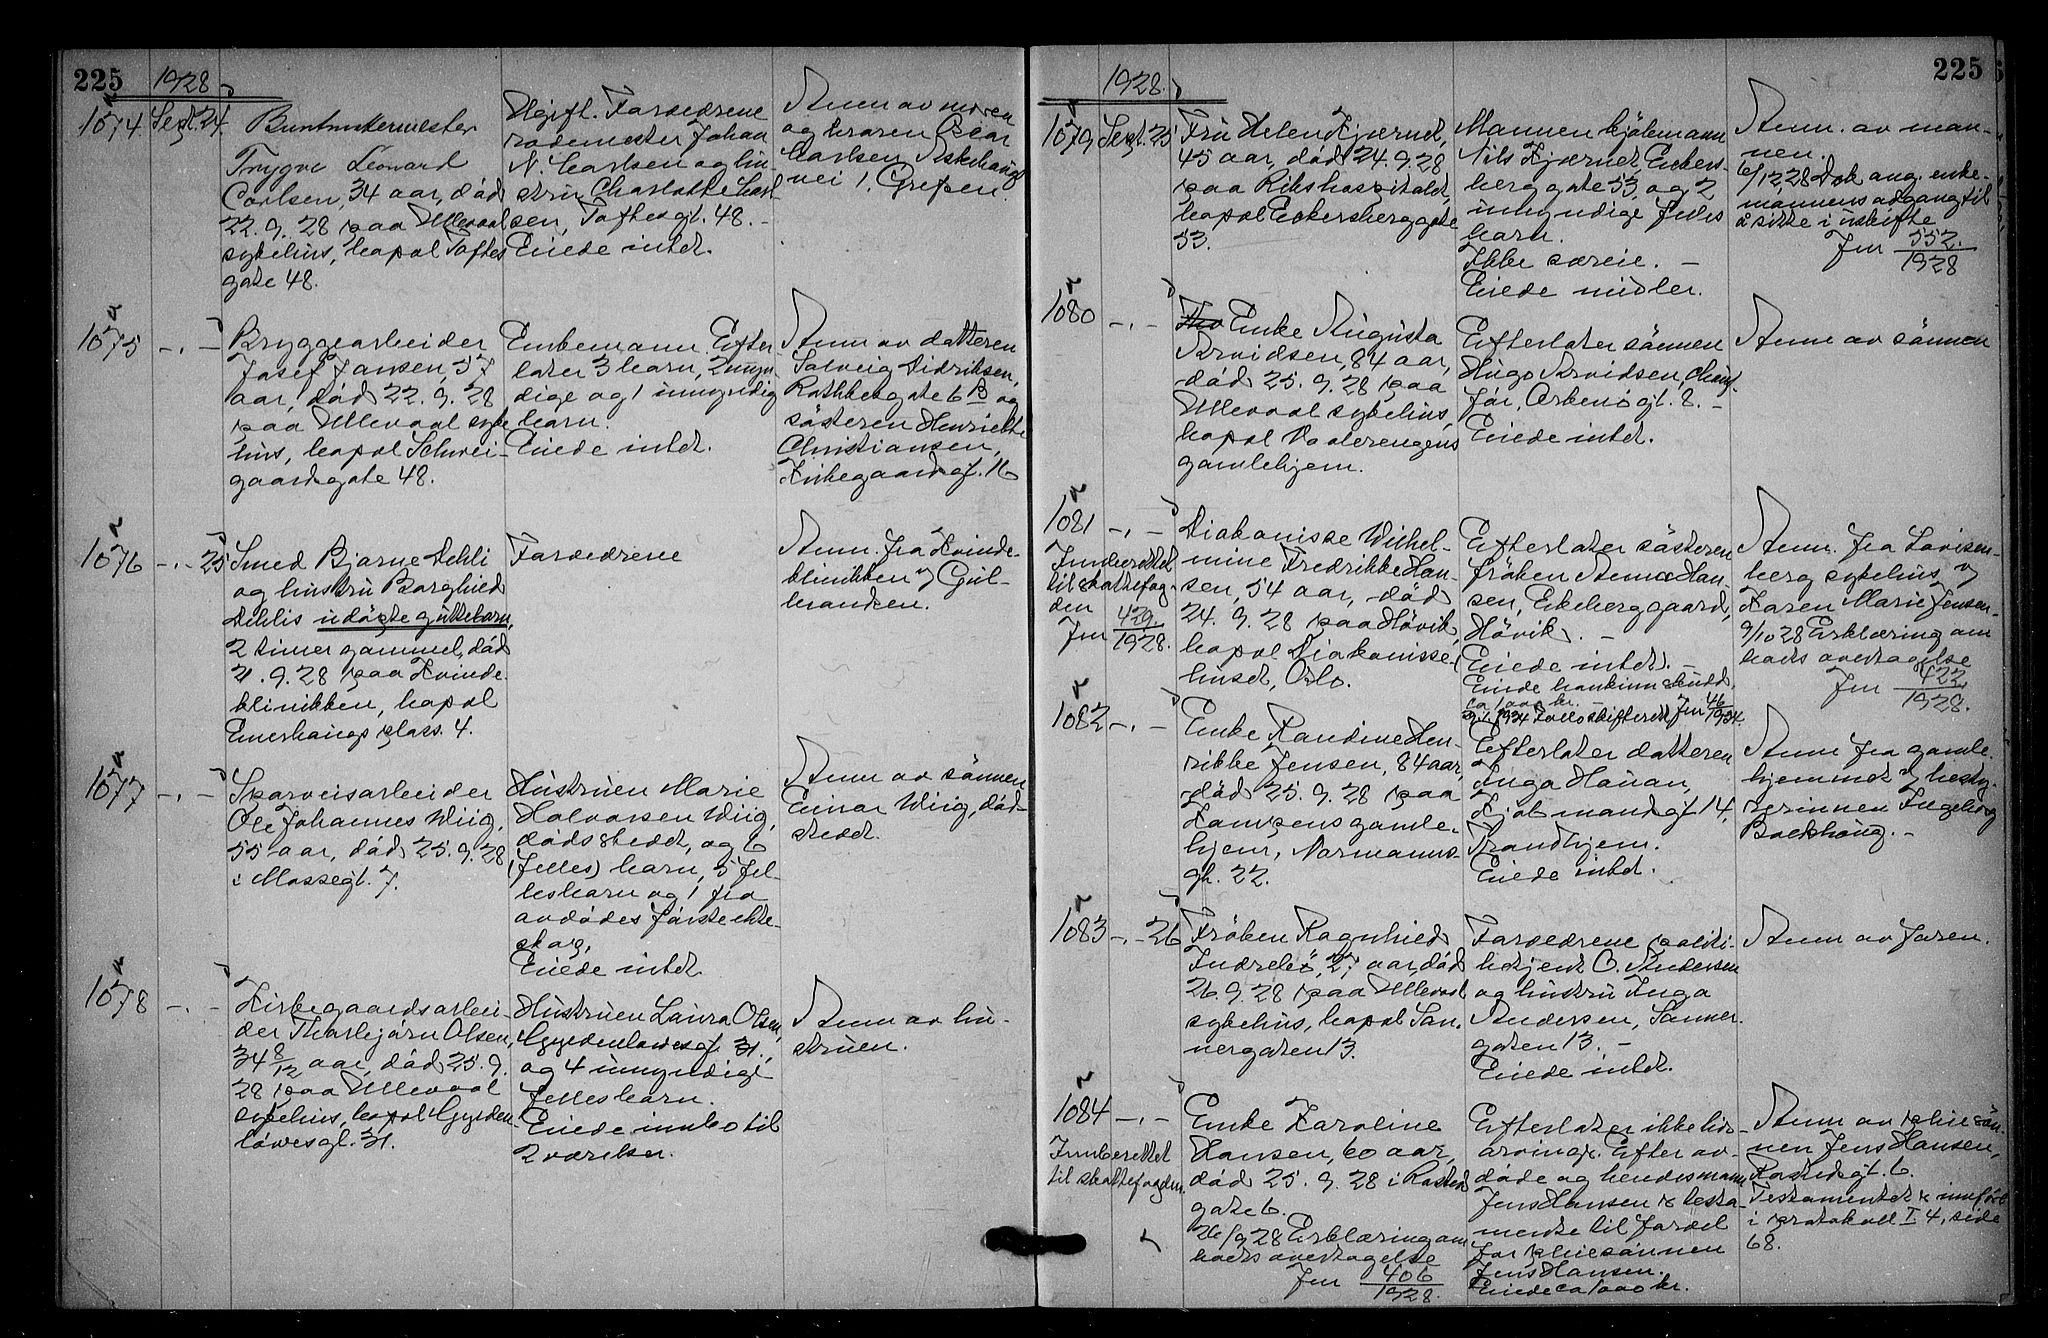 225 1928
1074 Sept. 24
Buntmakermester
Trygve Leonard
Carlsen, 34 aar, död
22.9.28 paa Ullevaal
sykehus, bopæl Toftes
gate 48.
Ugift. Forældrene
rodemester Johan
N. Carlsen og hu-
stru Charlotte Carl-
sen, Toftesgt. 48. -
Eiede intet.
Anm av moren
og broren Oscar
Carlsen Askehaugs
vei 1, Grefsen.
1075 -.-
Bryggearbeider
Josef Jansen, 57
aar, död 22.9.28
paa Ullevaal syke
hus, bopæl Schwei-
gaardsgate 48.
Enkemann. Efter
later 3 barn, 2 myn
dige og 1 umyndig
barn.
Eiede intet.
Anm av datteren
Solveig Didriksen,
Rathkesgate 6 B og
sösteren Henriette
Christiansen,
Kirkegaardsgt. 16
1076 -.- 25
Smed Bjarne Dehli
og hustru Borghild
Dehlis udöpte guttebarn,
2 timer gammel, död
21.9.28 paa Kvinde
klinikken, bopæl
Enerhaugs plass 4.
Forældrene
Anm. fra Kvinde-
klinikken v/ Gul-
brandsen.
1077 -.-
Sporveisarbeider
Ole Johannes Wiig,
55 aar, död 25.9.28
i Mossegt. 7.
Hustruen Marie
Halvorsen Wiig,
dödsstedet, og 6
(felles) barn, 5 fel-
lesbarn og 1 fra
avdödes förste ekte-
skap,
Eiede intet
Anm av sönnen
Einar Wiig, död-
stedet.
1078 -.-
Kirkegaardsarbei-
der Thorbjörn Olsen,
34 8/12 aar, död 25.9.
28 paa Ullevaal
sykehus, bopæl Gylden-
lövesgt. 31.
Hustruen Laura Olsen,
Gyldenlövesgt. 31,
og 4 umyndige
fellesbarn.
Eiede innbo til
2 værelser.
Anm av hu-
struen.
1928. 225
1079 Sept. 25
Fru Helen Kjærnet,
45 aar, död 24.9.28
paa Rikshospitalet,
bopæl Eckersberggate
53.
Mannen kjöbmann
Nils Kjærnet, Eckers-
berggate 53, og 2
umyndige felles
barn.
Ikke særeie. -
Eiede midler.
Anm. av man-
nen.
6/12 28 Dok ang. enke-
mannens adgang til
å sitte i uskifte
Jnr 552/1928
1080 -.-
Enke Augusta
Arvidsen, 84 aar,
död 25.9.28 paa
Ullevaal sykehus,
bopæl Vaalerengens
gamlehjem.
Efterlater sönnen
Hugo Arvidsen, chauf-
för, Orkenögt. 8. -
Eiede intet.
Anm av sönnen
1081 -.-
Innberettet
til skattefog-
den
Jnr 429/1928.
Diakonisse Wilhel-
mine Fredrikke Han-
sen, 54 aar, död
24.9.28 paa Hövik,
bopæl Diakonisse-
huset, Oslo.
Efterlater sösteren
fröken Anna Han-
sen, Ekeberggaard,
Hövik. -
Eiede intet. -
Eiede bankinnskudd
ca 1000 kr. -
1934 Follo skifterett Jnr 46/1934.
Anm. fra Lovisen-
berg sykehus v/
Karen Marie Jensen-
9/10 28 Erklæring om
boets overtagelse
Jnr 422/1928.
1082 -.-
Enke Randine Hen-
rikke Jensen, 84 aar,
död 25.9.28 paa
Kampens gamle-
hjem, Normanns-
gt. 22.
Efterlater datteren
Inga Hauan,
Kjöbmandsgt 14,
Trondhjem.
Eiede intet.
Anm fra gamle
hjemmet v/ besty-
rerinnen Ingeborg
Backhaug. -
1083 -.- 26
Fröken Ragnhild
Indrelid, 27 aar, död
26.9.28 paa Ullevaal
sykehus, bopæl San-
nergaten 13.
Forældrene politi-
betjent O. Andersen
og hustru Inga
Andersen, Sanner-
gaten 13. -
Eiede intet.
Anm av faren.
1084 -.-
Innberettet
til skattefogden.
Enke Karoline
Hansen, 60 aar,
död 25.9.28 i Rosted
gate 6.
26/9 28 Erklæring om
boets overtagelse
Jnr 406/1928.
Efterlater ikke livs-
arvinge. Efter av-
döde og hendes mann
Jens Hansens testa-
mente til fordel
for pleiesönnen
Jens Hansen.
Eiede ca 1000 kr.
Anm av pleiesön-
nen Jens Hansen,
Rostedsgt. 6.
Testamentet er innfört
i protokoll I 4, side
68.